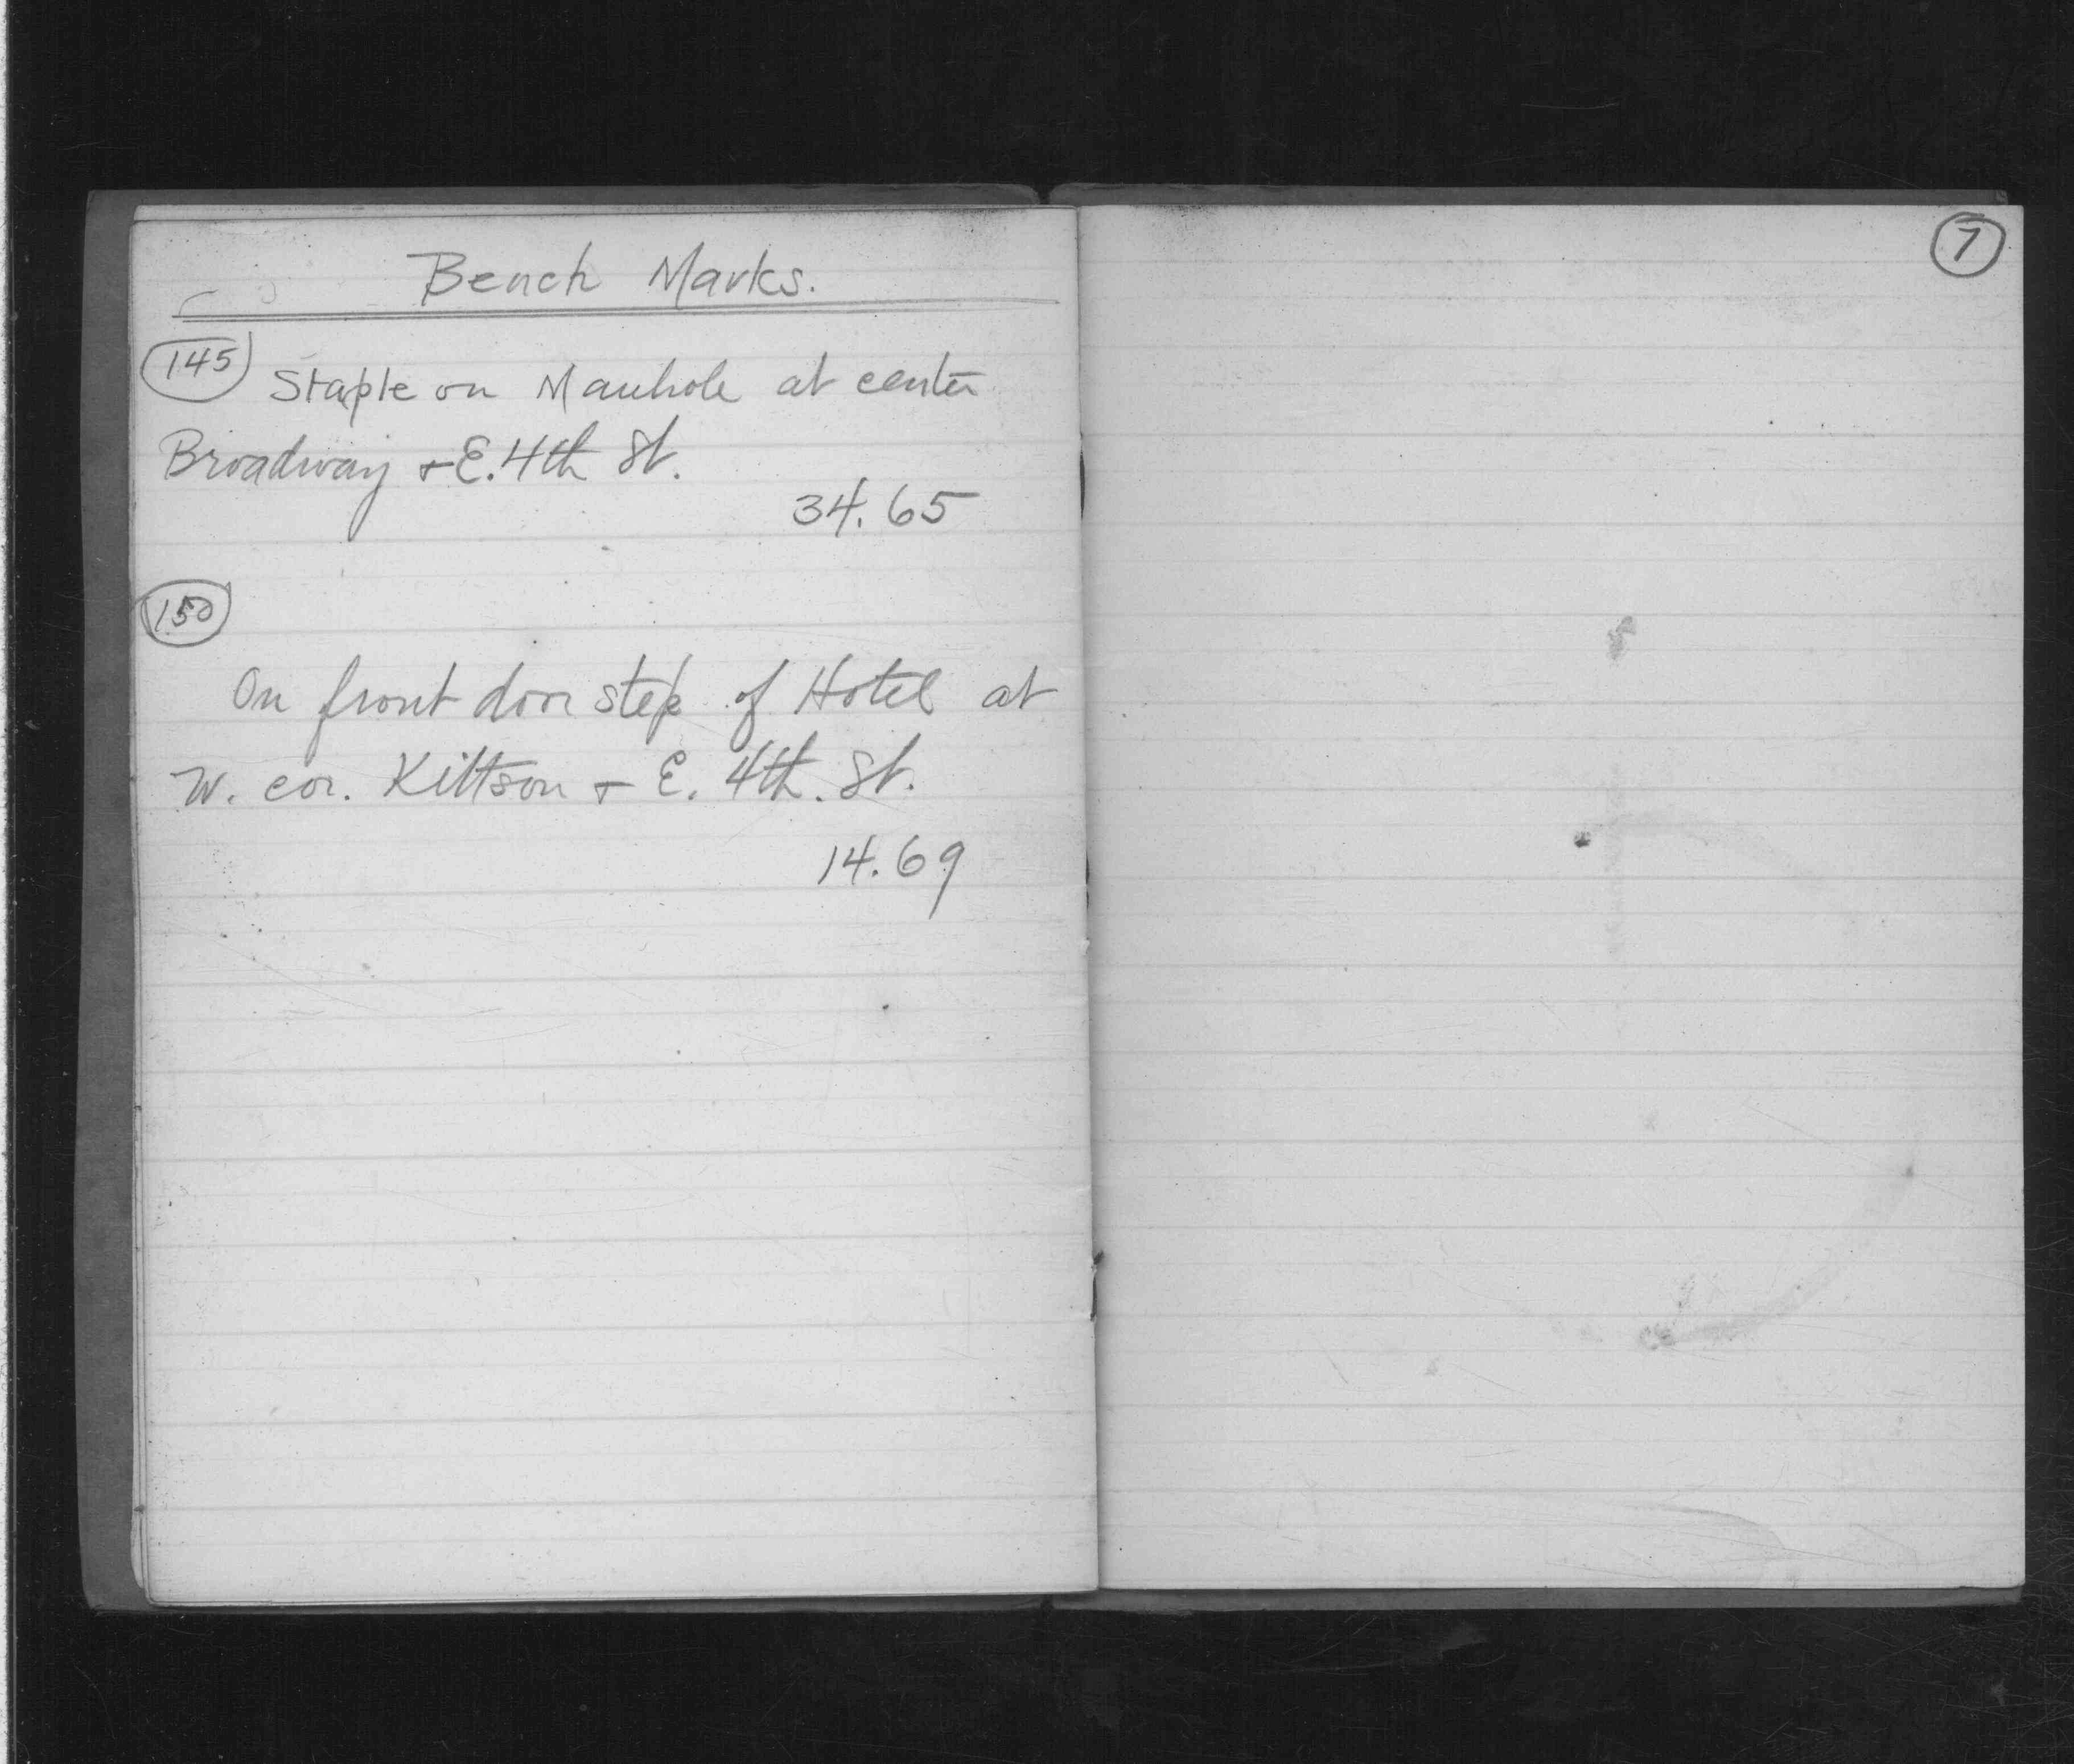 Bench Marks.
145
Staple on Manhole at center
Broadway + E. 4th St.
34.65
150
On front door step of Hotel at
W. cor. Kittson + E. 4th. St.
14.69
7